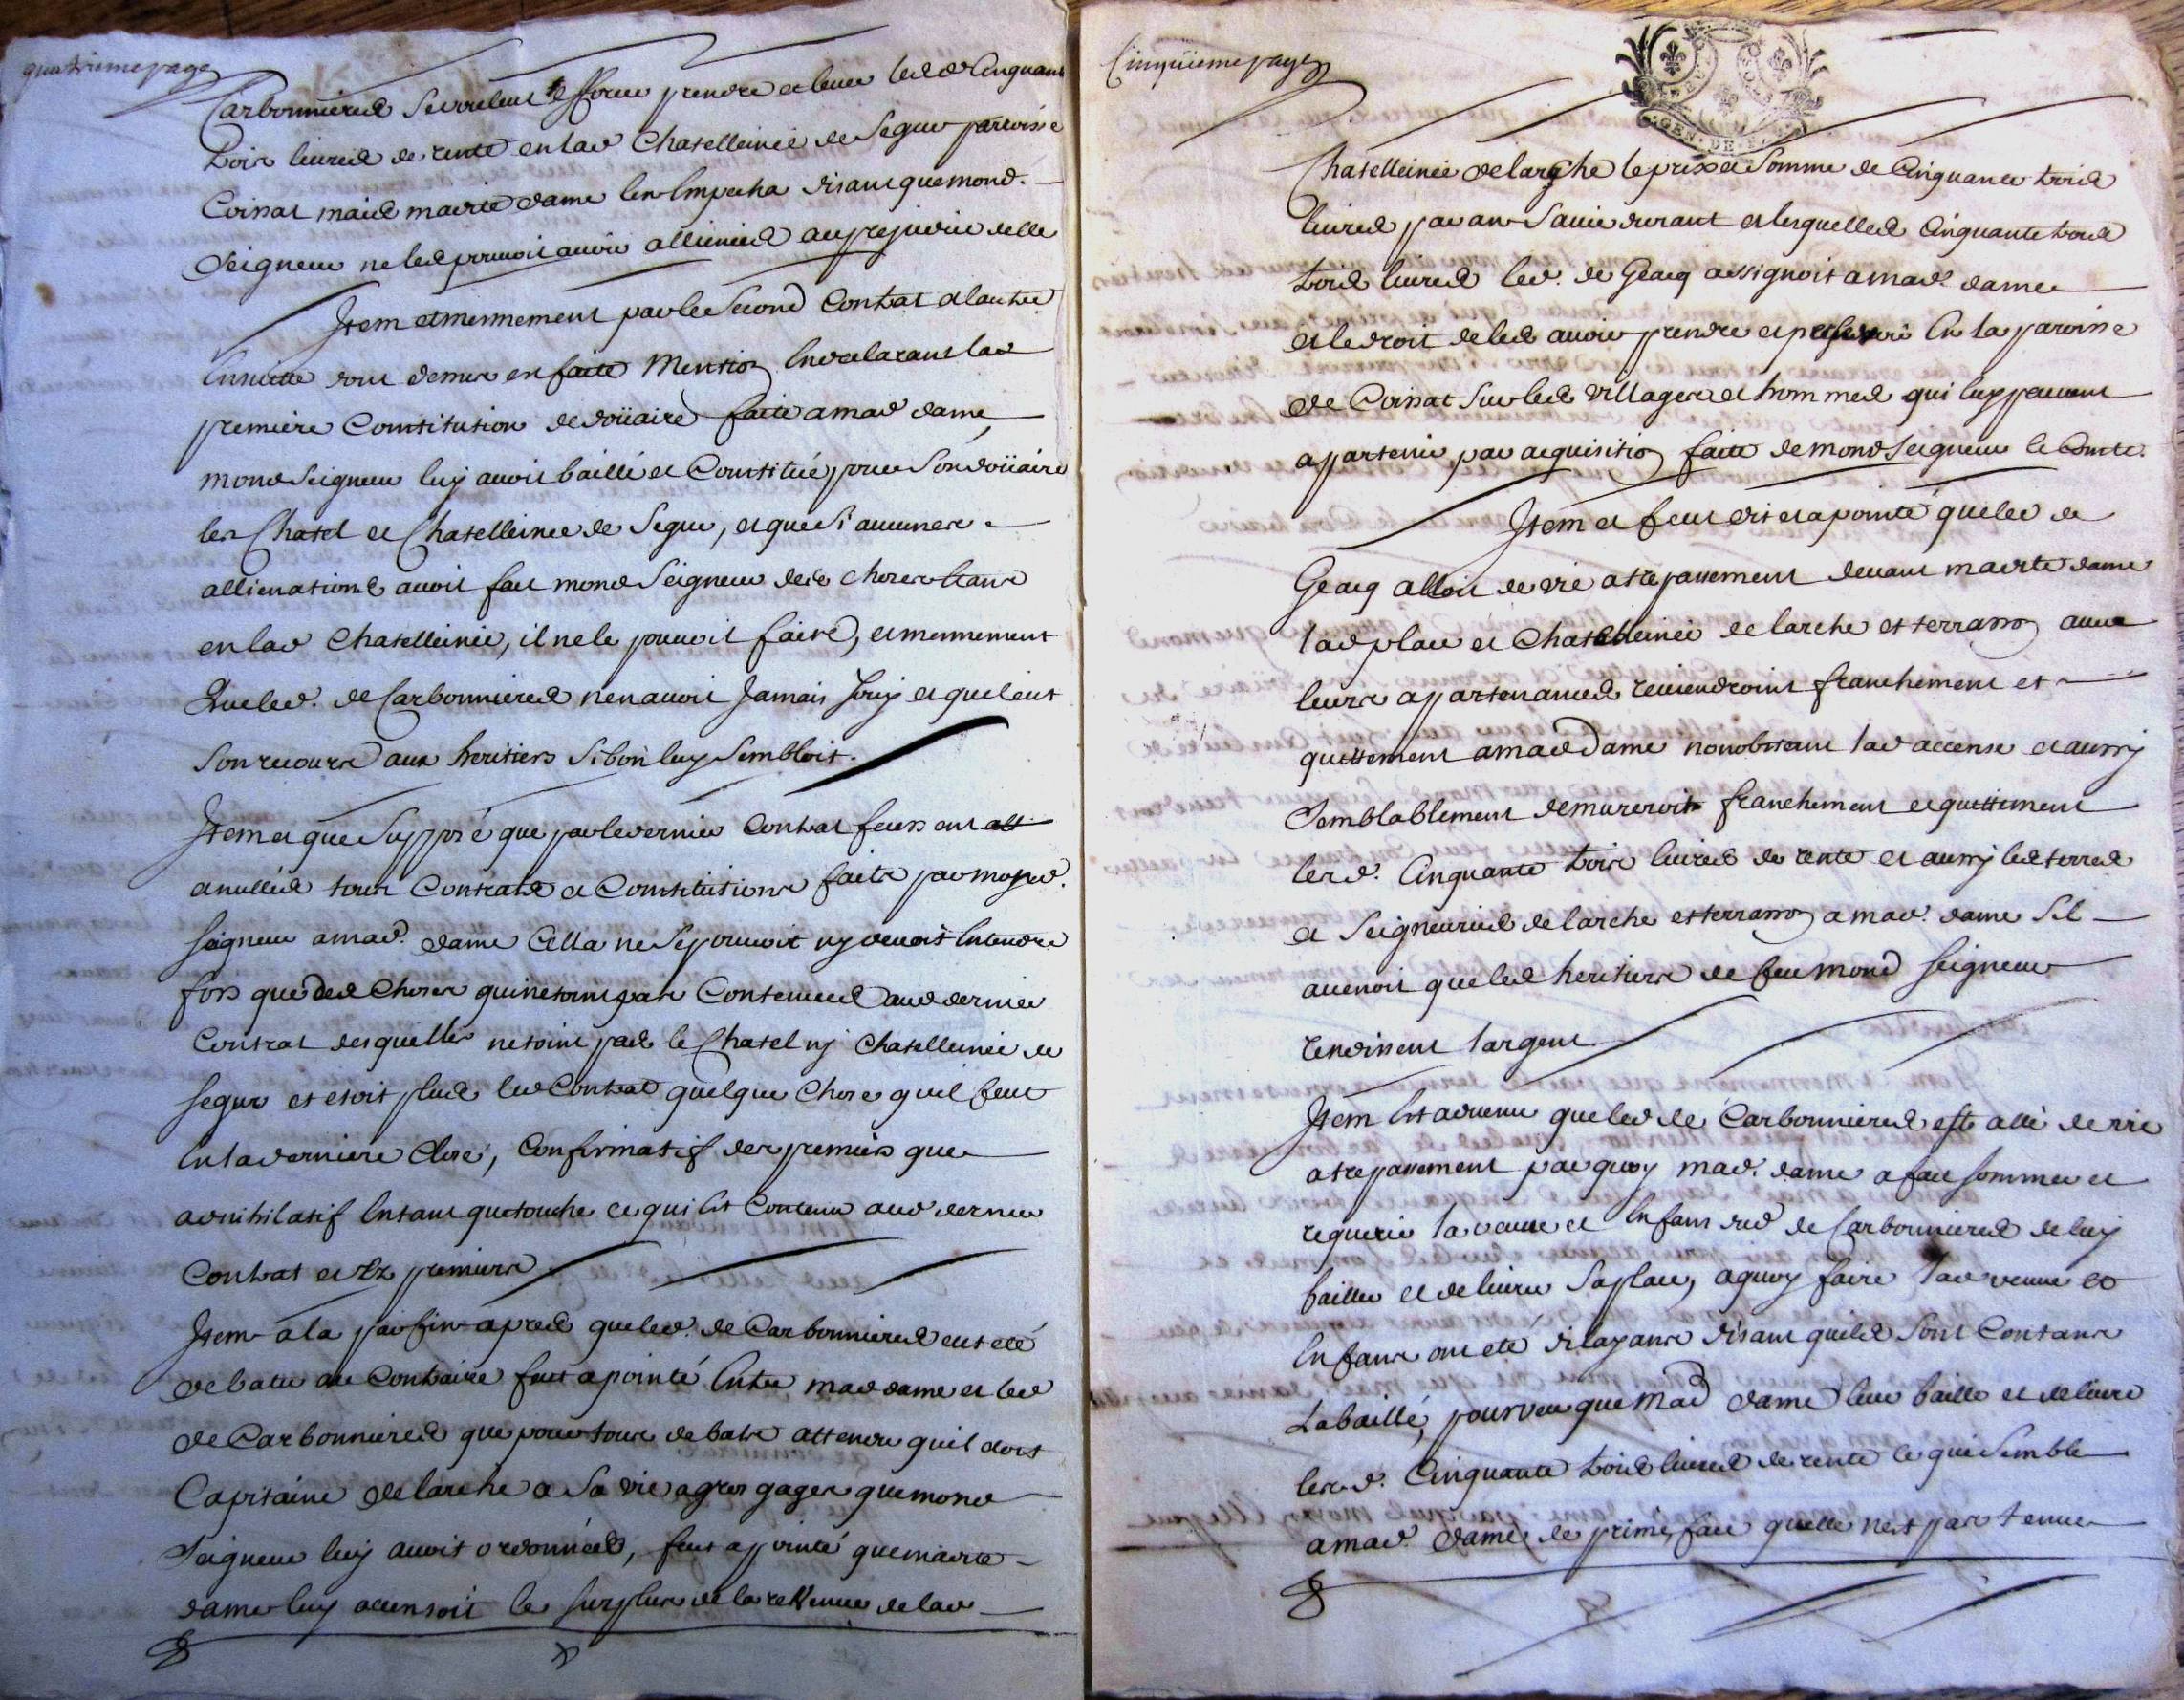 quatrieme page
Carbonnieres se vouleut efforcer prendre et lever lesd. Cinquante
trois livres de rente en lad Chatelleinie de Segur parroisse
Coinat mais madite dame len Empecha disant que mond.
Seigneur ne les pouvoit avoir allienés au prejudice delle
Item et mennement par le Second Contrat a lautre
Ensuitte dont dernier en faite Mention, En declarant lad
premiere Constitution de doüaire faite a mad dame
mond Seigneur luy avoit baillé et Constitué pour Son doüaire
les Chatel et Chatelleinee de Segur, et que Si aucunes
allienations avoit fait mond Seigneur de ce choses etans
en lad Chatelleinie, il ne le pouvoit faire, et mennement
Que led. de Carbonnieres nen avoit Jamais Jouy et quel eut
Son recours aux heritiers Si bon luy Sembloit.
Item et que Supposé que par le dernier Contrat feussent
anullés tous Contrats et Constitutions faits par mond.
Seigneur a mad. dame Cella ne Se pouvoit ny devoit Entendre
fors que des Choses qui netoint pas Contenues aud dernier
Contrat desquelles netoint pas le Chatel ny Chatelleinie de
Segur et etoit plus led Contrat quelque Chose quil feut
En la derniere Close, Confirmatif des premiers que
adnihilatif En tant que touche ce qui Est Contenu aud dernier
Contrat et ez premiers
Item a la parfin apres que led. de Carbonnieres eut eté
debatu au Contraire feut apointé Entre mad dame et led
de Carbonnieres que pour tous debats attendu quil doit
Capitaine de larche a Sa vie a gros gages que mond
Seigneur luy avoit ordonnées, feut apointé que madite
dame luy accensoit le Surplus de la revenue de lad
Cinquieme page
GEN DE
Chatelleinie de larche le prix et Somme de Cinquante trois
livres par an Sa vie durant et lesquelles Cinquante trois
trois livres led. de Geacq assignoit a mad. dame
et le droit de les avoir prendre et percevoir En la paroisse
de Coinat Sur les Villages et hommes qui luy peuvent
apartenir par acquisition faite de mond Seigneur le Comte.
Item et feut dit et apointé que led de
Geacq alloit de vie a trepassement devant madite dame
lad place et Chatelleinie de larche et terrasson avec
leurs apartenances reviendroint franchement et
quittement a mad Dame nonobstant lad accense et aussy
Semblablement demureroit franchement et quittement
lesd. Cinquante trois livres de rente et aussy les terres
et Seigneuries de larche et terrasson a mad. dame Sil
avenoit que les heritiers de feu mond Seigneur
rendissent largent
Item Est advenu que led de Carbonnieres est allé de vie
a trepassement par quoy mad. dame a fait Sommer et
requerir la veuve et Enfans dud de Carbonnieres de luy
bailler et delivrer Saplace, a quoy faire lad veuve et
Enfans ont eté dilayans disant quils Sont Contans
La baillé, pourveu que mad dame leur baille et delivre
lesd. Cinquante trois livres de rente ce qui Semble
a mad. dame de prime face quelle nest pas tenue